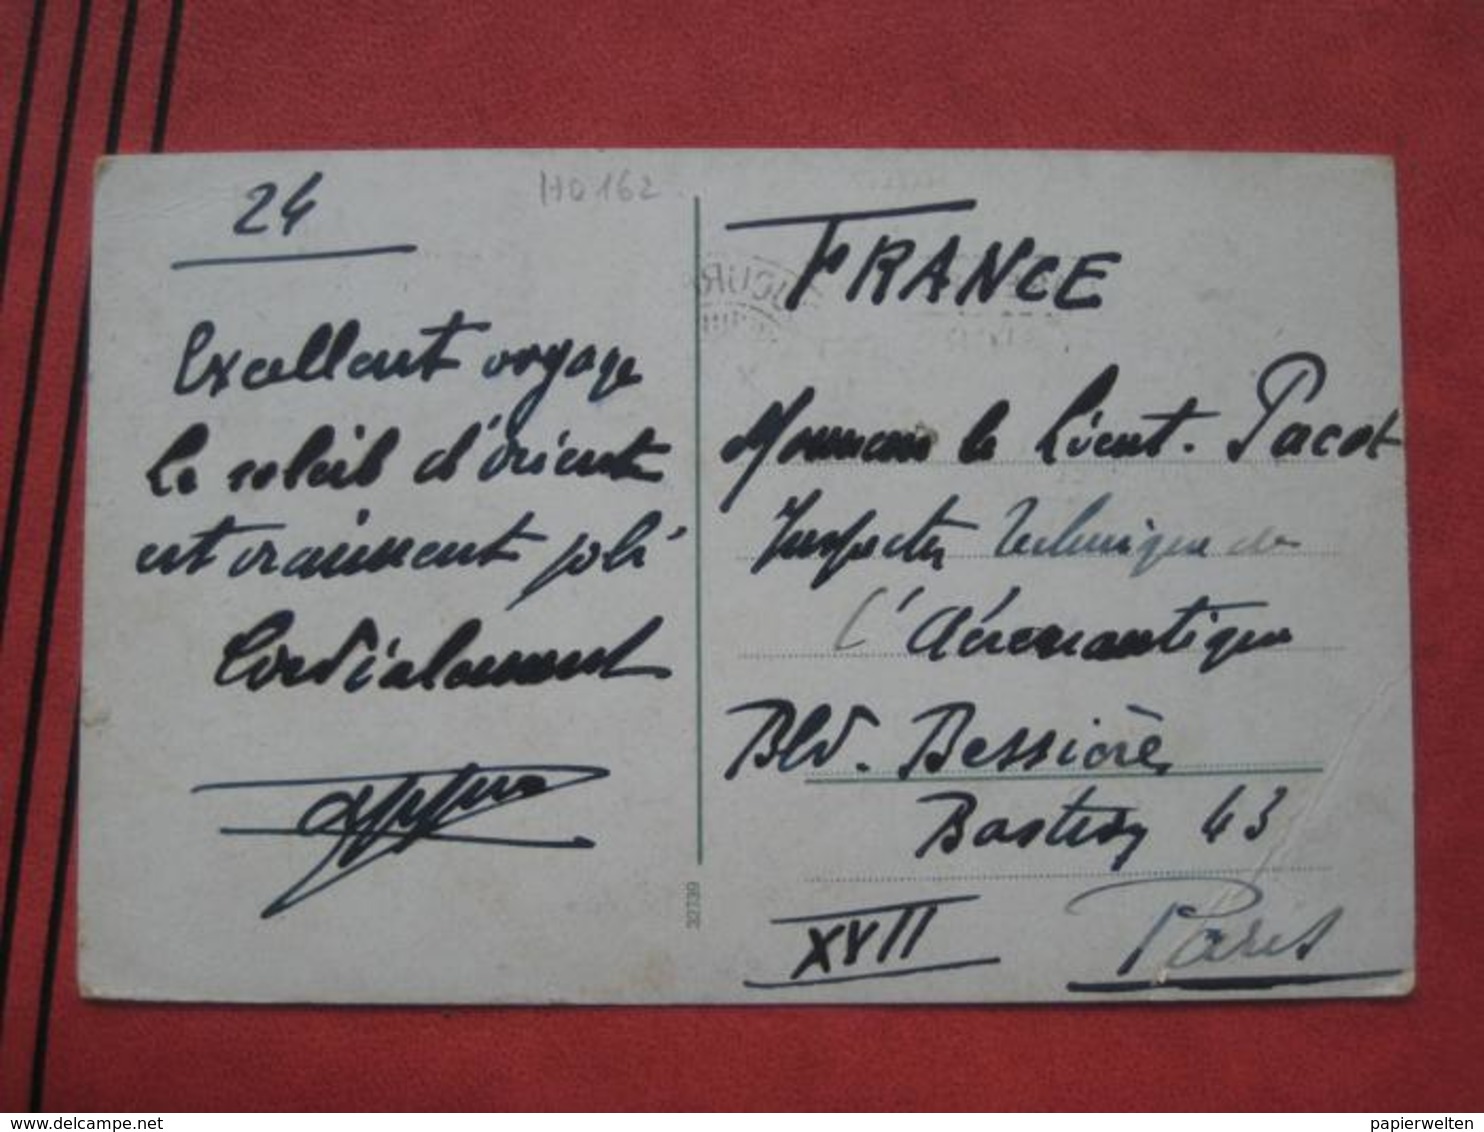 24
H0162
Excellent voyage
Le soleil d'orient
est vraiment joli
Cordialement
32739
FRANCE
Monsieur le Lieut. Pacot
Inspecter technique de
l'Aéronautique
Bld. Bessière
Bastion 43
XVII Paris
papierwelten